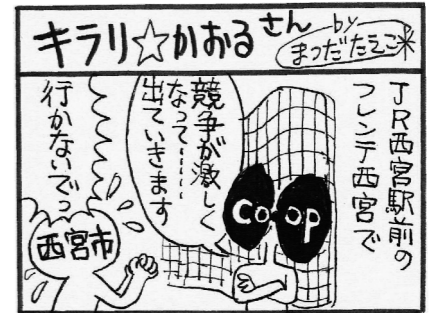 キラリ☆かおるさん
by
まつだたえこ米
JR西宮駅前の
フレンテ西宮で
競争が激しく
なって……
出ていきます
co op
行かないでっ
西宮市